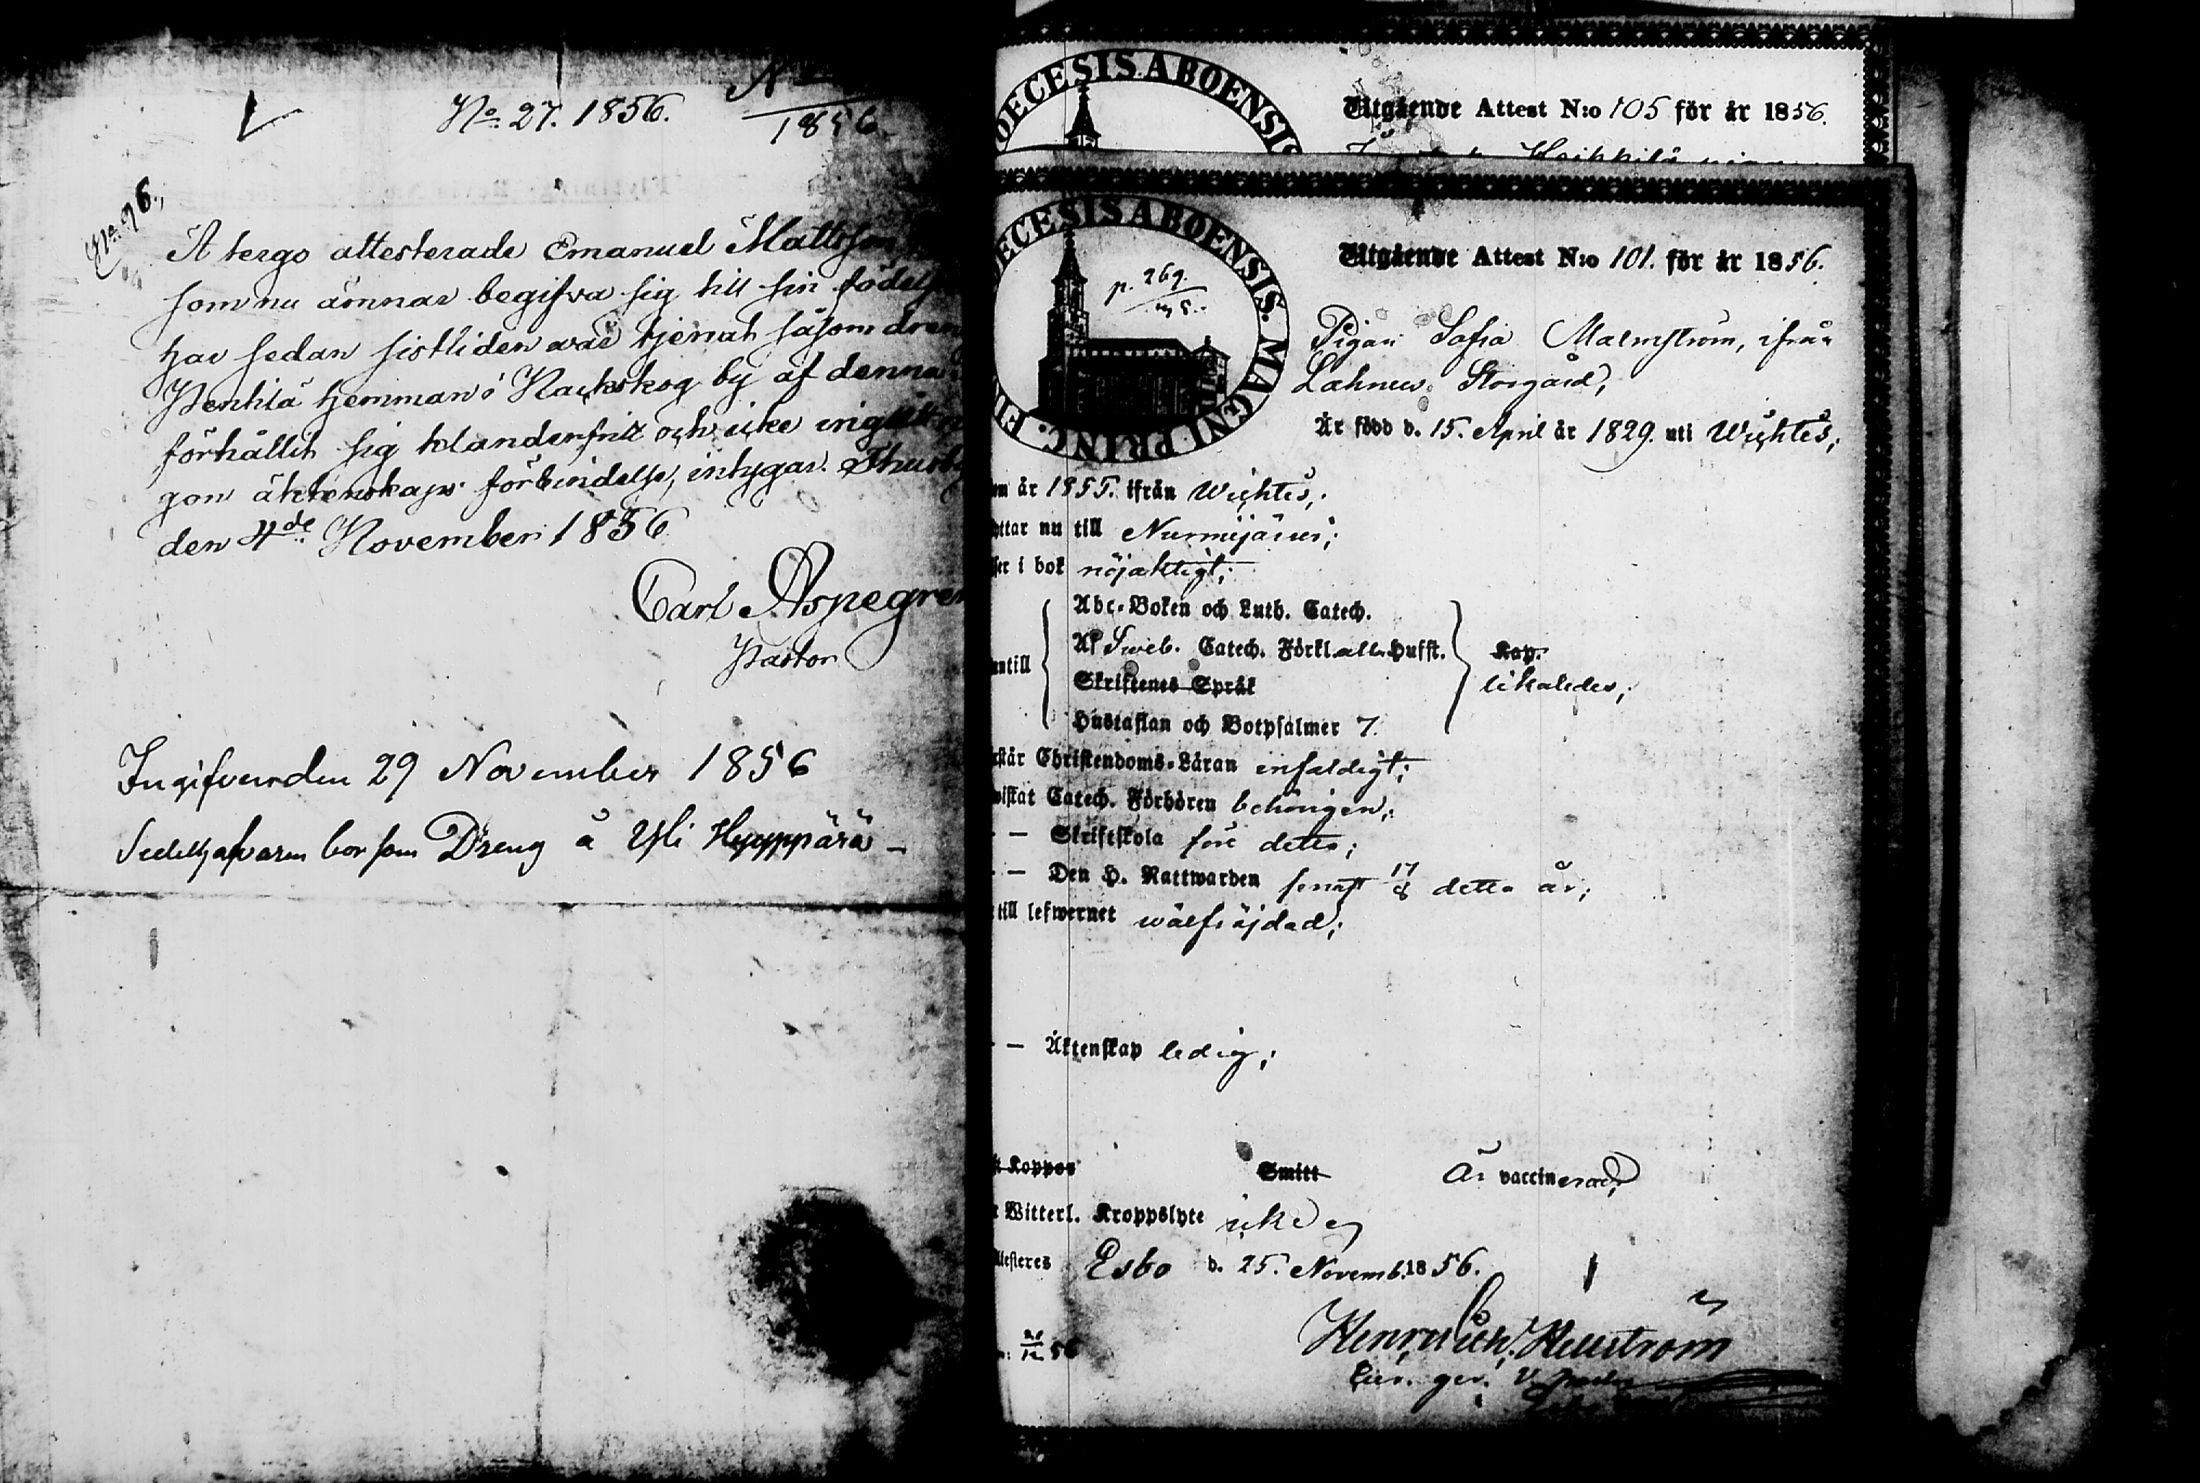 No. 27. 1856.
N
1856.
No. 96.,
A tergo attesterade Emanuel Mattsson
som nu ämnar begifva sig till sin födelse
har sedan sistliden avar tjenat såsom dren
Penttilä hemman i Nackskog by af denna
förhållit sig klanderfritt och icke ingått n
gon äktenskaps förbindelse, intygar. Thusby
den 4de November 1856
Carl Aspegren
Pastor
Ingifven den 29 November 1856
Sedelhafvaren bor som Dreng å Yli Hyyppärä –
DECESIS ABOENSIS
Utgående Attest N:o 105 för år 1856.
Heikkilä
DECESIS ABOENSIS. MAGNI PRINC. FI
p. 269.
Utgående Attest N:o 101. för år 1856.
Pigan Sofia Malmström, ifrån
Lahnus Storgård,
Är född d. 15. April år 1829. uti Wichtis;
om år 1855. ifrån Wichtis;
yttar nu till Nurmijärvi;
ser i bok nöjaktigt;
Abc-Boken och Luth. Catech.
Af Sweb. Catech. Förkl. alla Hufst.
Kap.
antill
Skriftenes Språk
likaledes;
Hustaflan och Botpsalmer 7.
rstår Christendoms-Läran enfaldigt;
wistat Catech. Förhören behörigen;
– – Skriftskola före detta;
– – Den H. Nattwarden senast 17/8 detta år;
till lefwernet wälfräjdad;
– – Äktenskap ledig;
t Koppor Smitt Är vaccinerad;
r Witterl. Kroppslyte icke
ttesteres Esbo d. 25. Novemb. 1856.
Henrik Hellström